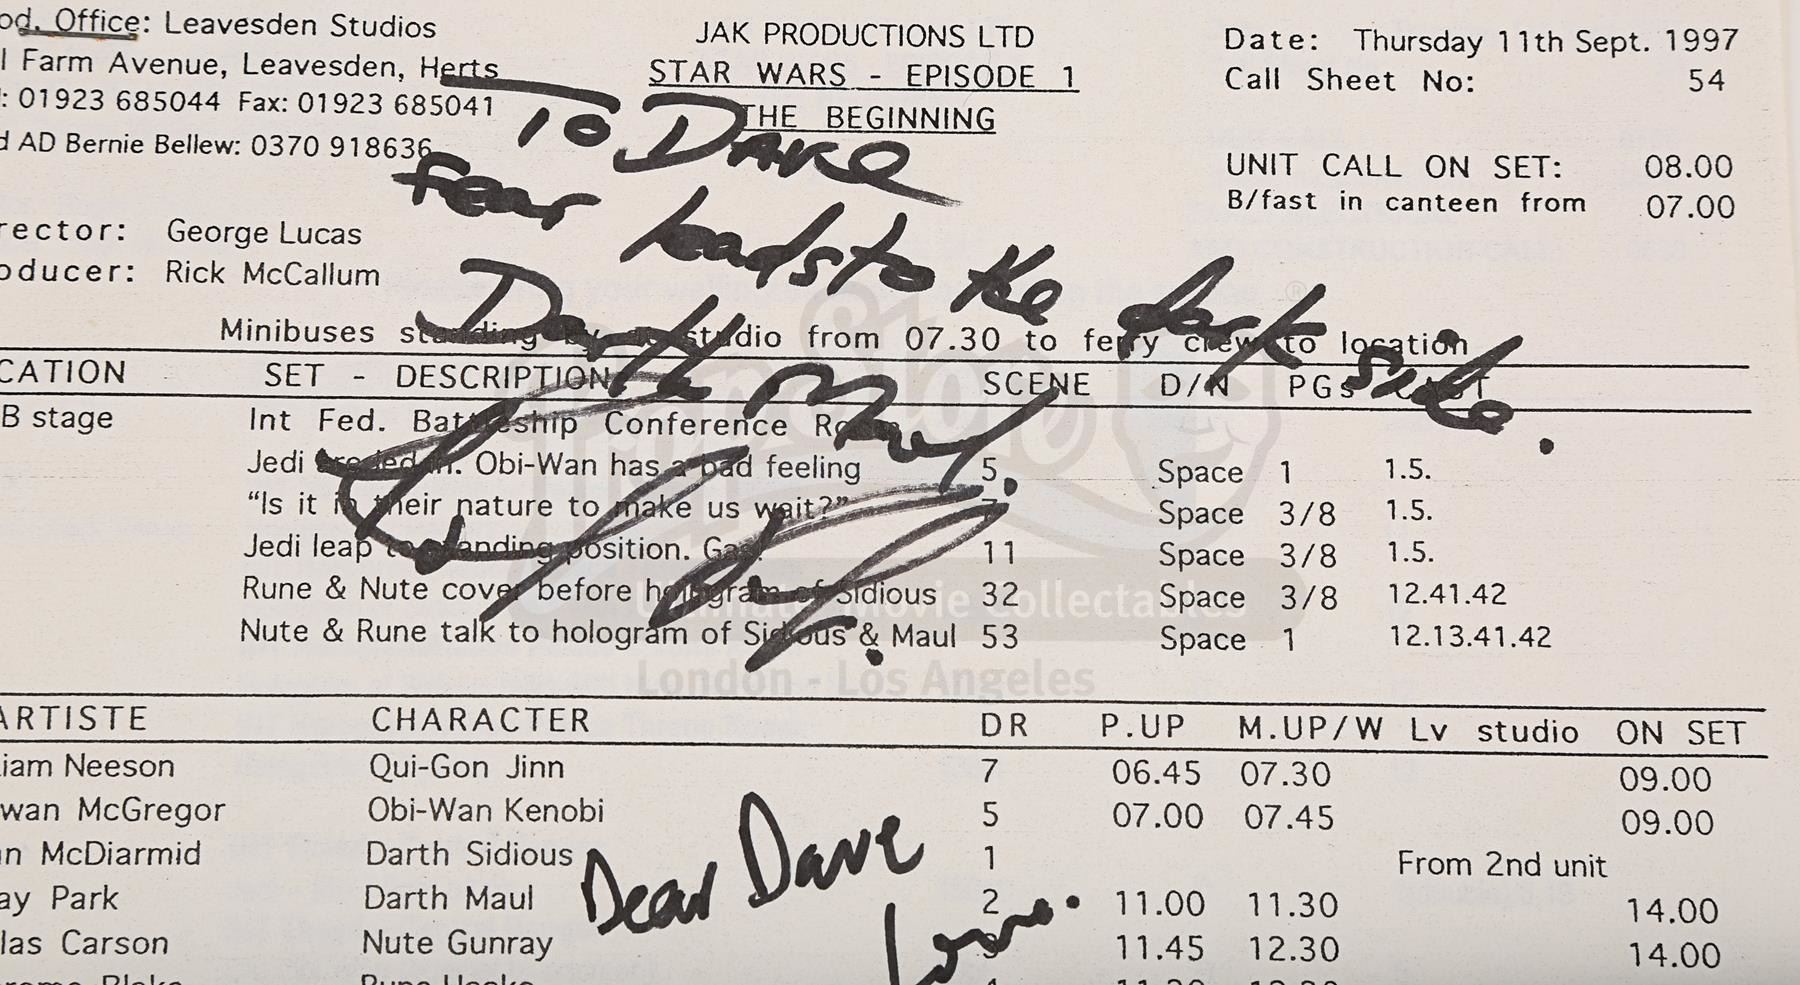 od. Office: Leavesden Studios
l Farm Avenue, Leavesden, Herts
: 01923 685044 Fax: 01923 685041
d AD Bernie Bellew: 0370 918636
JAK PRODUCTIONS LTD
STAR WARS - EPISODE 1
THE BEGINNING
Date: Thursday 11th Sept. 1997
Call Sheet No: 54
UNIT CALL ON SET: 08.00
B/fast in canteen from 07.00
To Dave
fear leads to the dark side.
Darth Maul.
rector: George Lucas
oducer: Rick McCallum
Minibuses standing by at studio from 07.30 to ferry crew to location
CATION SET - DESCRIPTION SCENE D/N PGs CAST
B stage Int Fed. Battleship Conference Room
Jedi . Obi-Wan has a bad feeling 5 Space 1 1.5.
“Is it in their nature to make us wait?” 7 Space 3/8 1.5.
Jedi leap to standing position. Gas. 11 Space 3/8 1.5.
Rune & Nute cover before hologram of Sidious 32 Space 3/8 12.41.42
Nute & Rune talk to hologram of Sidious & Maul 53 Space 1 12.13.41.42
Propstore
Ultimate Movie Collectables
London - Los Angeles
ARTISTE CHARACTER DR P.UP M.UP/W Lv studio ON SET
iam Neeson Qui-Gon Jinn 7 06.45 07.30 09.00
wan McGregor Obi-Wan Kenobi 5 07.00 07.45 09.00
n McDiarmid Darth Sidious 1 From 2nd unit
ay Park Darth Maul 2 11.00 11.30 14.00
las Carson Nute Gunray 3 11.45 12.30 14.00
Dear Dave